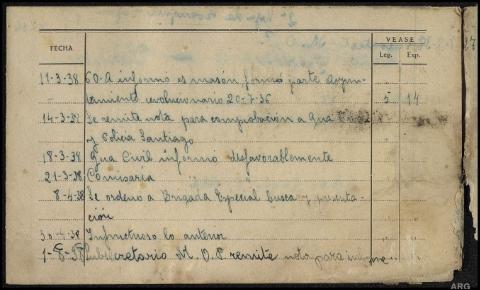 FECHA
VEASE
Leg. Exp.
11-3-38 60-A informo es mason formó parte Ayun-
tamiento revolucionario 20-7-36 5 14
14-3-38 Se remite nota para comprobacion a Gua Civil
y Policia Santiago
18-3-38 Gua Civil informó desfavorablemente
21-3-38 Comisaria
8-4-38 Se ordeno a Brigada Especial busca y presenta-
ción
30-4-38 Infructuoso lo anterior
1-8-38 Subsecretario M. O. P remite nota para informe
17
ARG